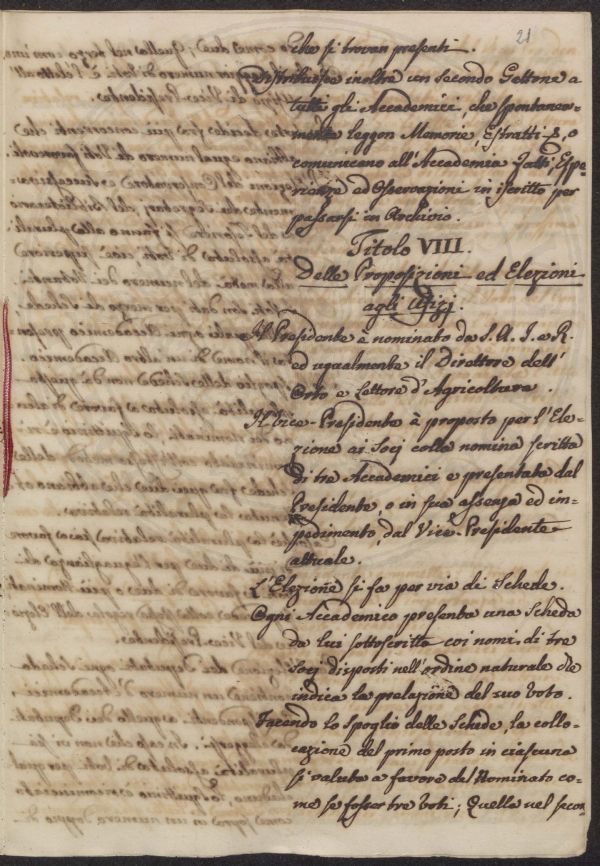 21
che si trovan presenti.
Distribuisce inoltre un secondo Gettone a
tutti gli Accademici, che spontanea-
mente leggon Memorie, Estratti &, o
comunicano all'Accademia Fatti, Espe-
rienze ed Osservazioni in iscritto per
passarsi in Archivio.
Titolo VIII.
Delle Proposizioni ed Elezioni
agli Ufizj.
Il Presidente è nominato da S. A. I. e R.
ed ugualmente il Direttore dell'
Orto e Lettore d'Agricoltura.
Il Vice-Presidente è proposto per l'Ele-
zione ai Socj colla nomina scritta
di tre Accademici e presentata dal
Presidente, o in sua assenza ed im-
pedimento, dal Vice-Presidente
attuale.
L'Elezione si fa per via di Schede.
Ogni Accademico presenta una Scheda
da lui sottoscritta coi nomi di tre
Socj disposti nell'ordine naturale che
indica la prelazione del suo Voto.
Facendo lo Spoglio delle Schede, la collo-
cazione del primo posto in ciascuna
si valuta a favore del Nominato co-
me se fosser tre Voti; Quella nel secon-